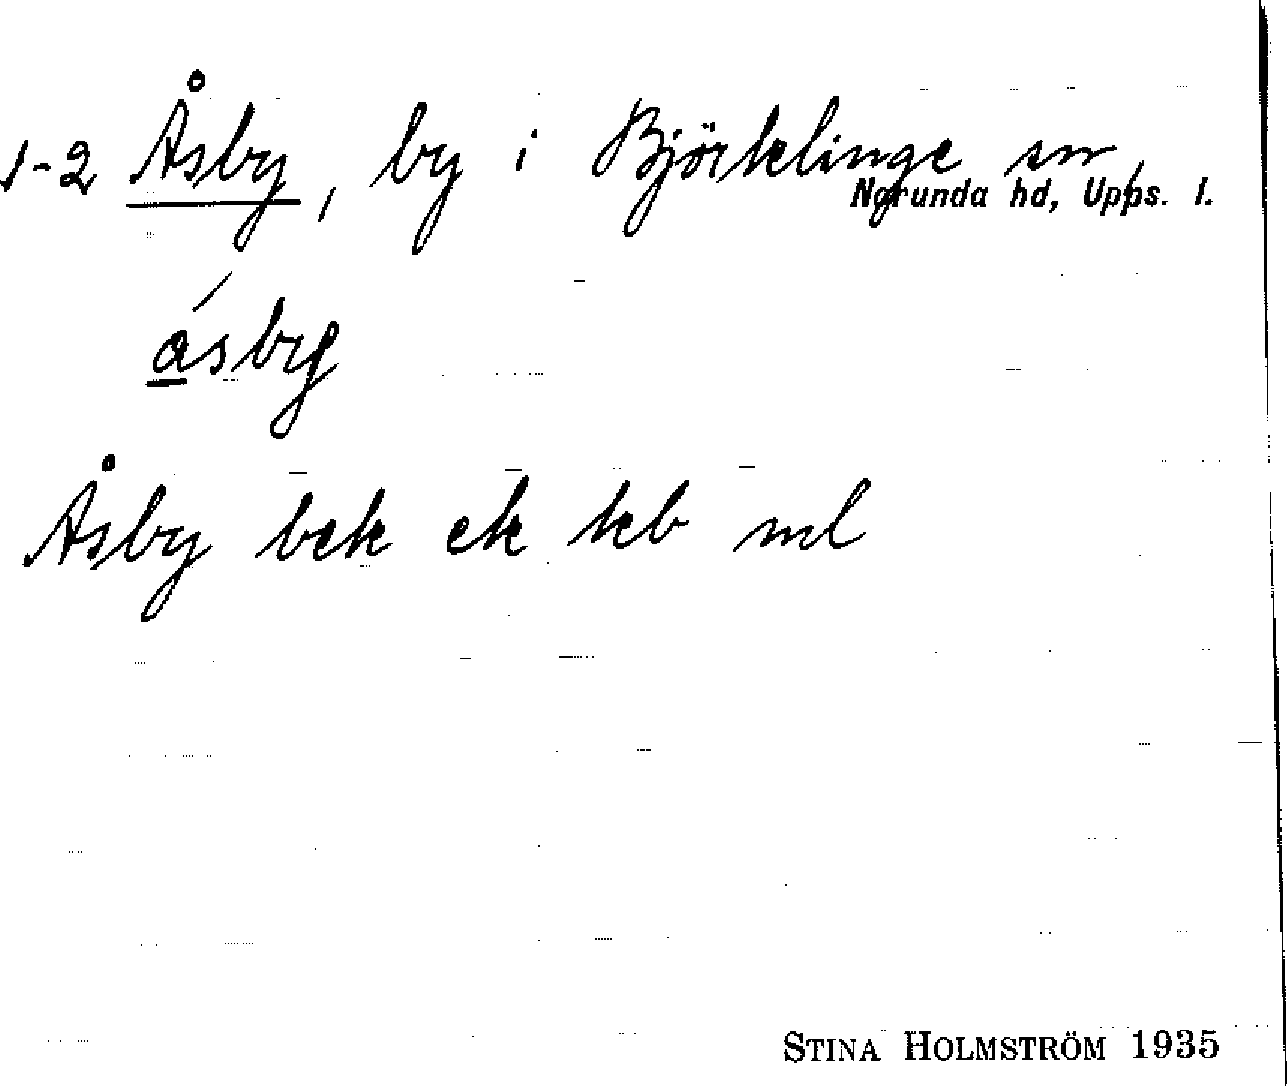 1-2 Åsby, by i Björklinge sn,
Norunda hd, Upps. l.
ásby
Åsby bek ek kb ml
STINA HOLMSTRÖM 1935